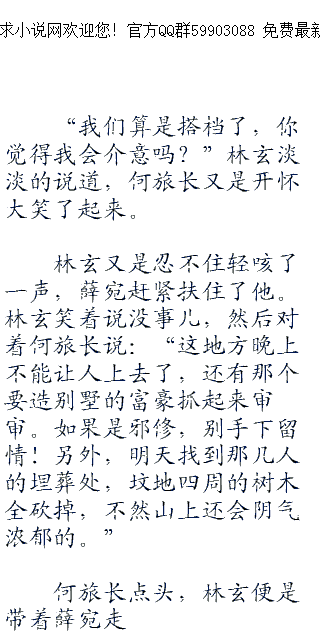 求小说网欢迎您！官方QQ群59903088 免费最新
“我们算是搭档了，你
觉得我会介意吗？”林玄淡
淡的说道，何旅长又是开怀
大笑了起来。
林玄又是忍不住轻咳了
一声，薛宛赶紧扶住了他。
林玄笑着说没事儿，然后对
着何旅长说：“这地方晚上
不能让人上去了，还有那个
要造别墅的富豪抓起来审
审。如果是邪修，别手下留
情！另外，明天找到那几人
的埋葬处，坟地四周的树木
全砍掉，不然山上还会阴气
浓郁的。”
何旅长点头，林玄便是
带着薛宛走